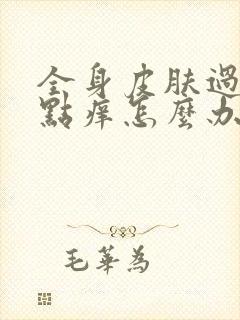 全身皮肤過
點痒怎麼办
毛華為